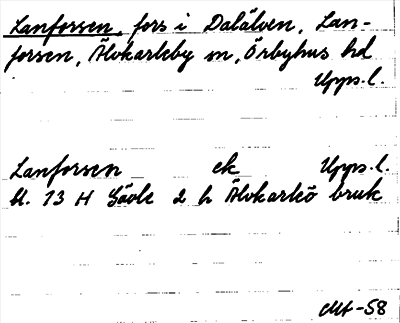 Lanforsen, fors i Dalälven, Lan-
forsen, Älvkarleby sn, Örbyhus hd
Upps.l.
Lanforsen ek Upps.l.
bl. 13 H Gävle 2 h Älvkarleö bruk
-58